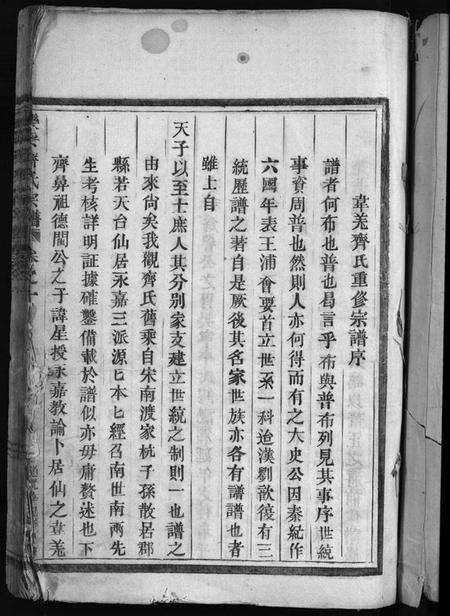 韋羌齊氏重修宗譜序
譜者何布也普也曷言乎布與普布列見其事序世統
事資周普也然則人亦何得而有之大史公因秦紀作
六國年表王浦會要首立世系一科迨漢劉歆復有三
統歷譜之著自是厥後其名家世族亦各有譜譜也者
雖上自
天子以至士庶人其分別家支建立世統之制則一也譜之
由來尚矣我觀齊氏舊乘自宋南渡家杭子孫散居郡
縣若天台仙居永嘉三派源匕本匕經召南世南兩先
生考核詳明証據確鑿備載於譜似亦毋庸贅述也下
齊鼻祖德閏公之子諱星授永嘉教諭卜居仙之韋羌
齊氏宗譜